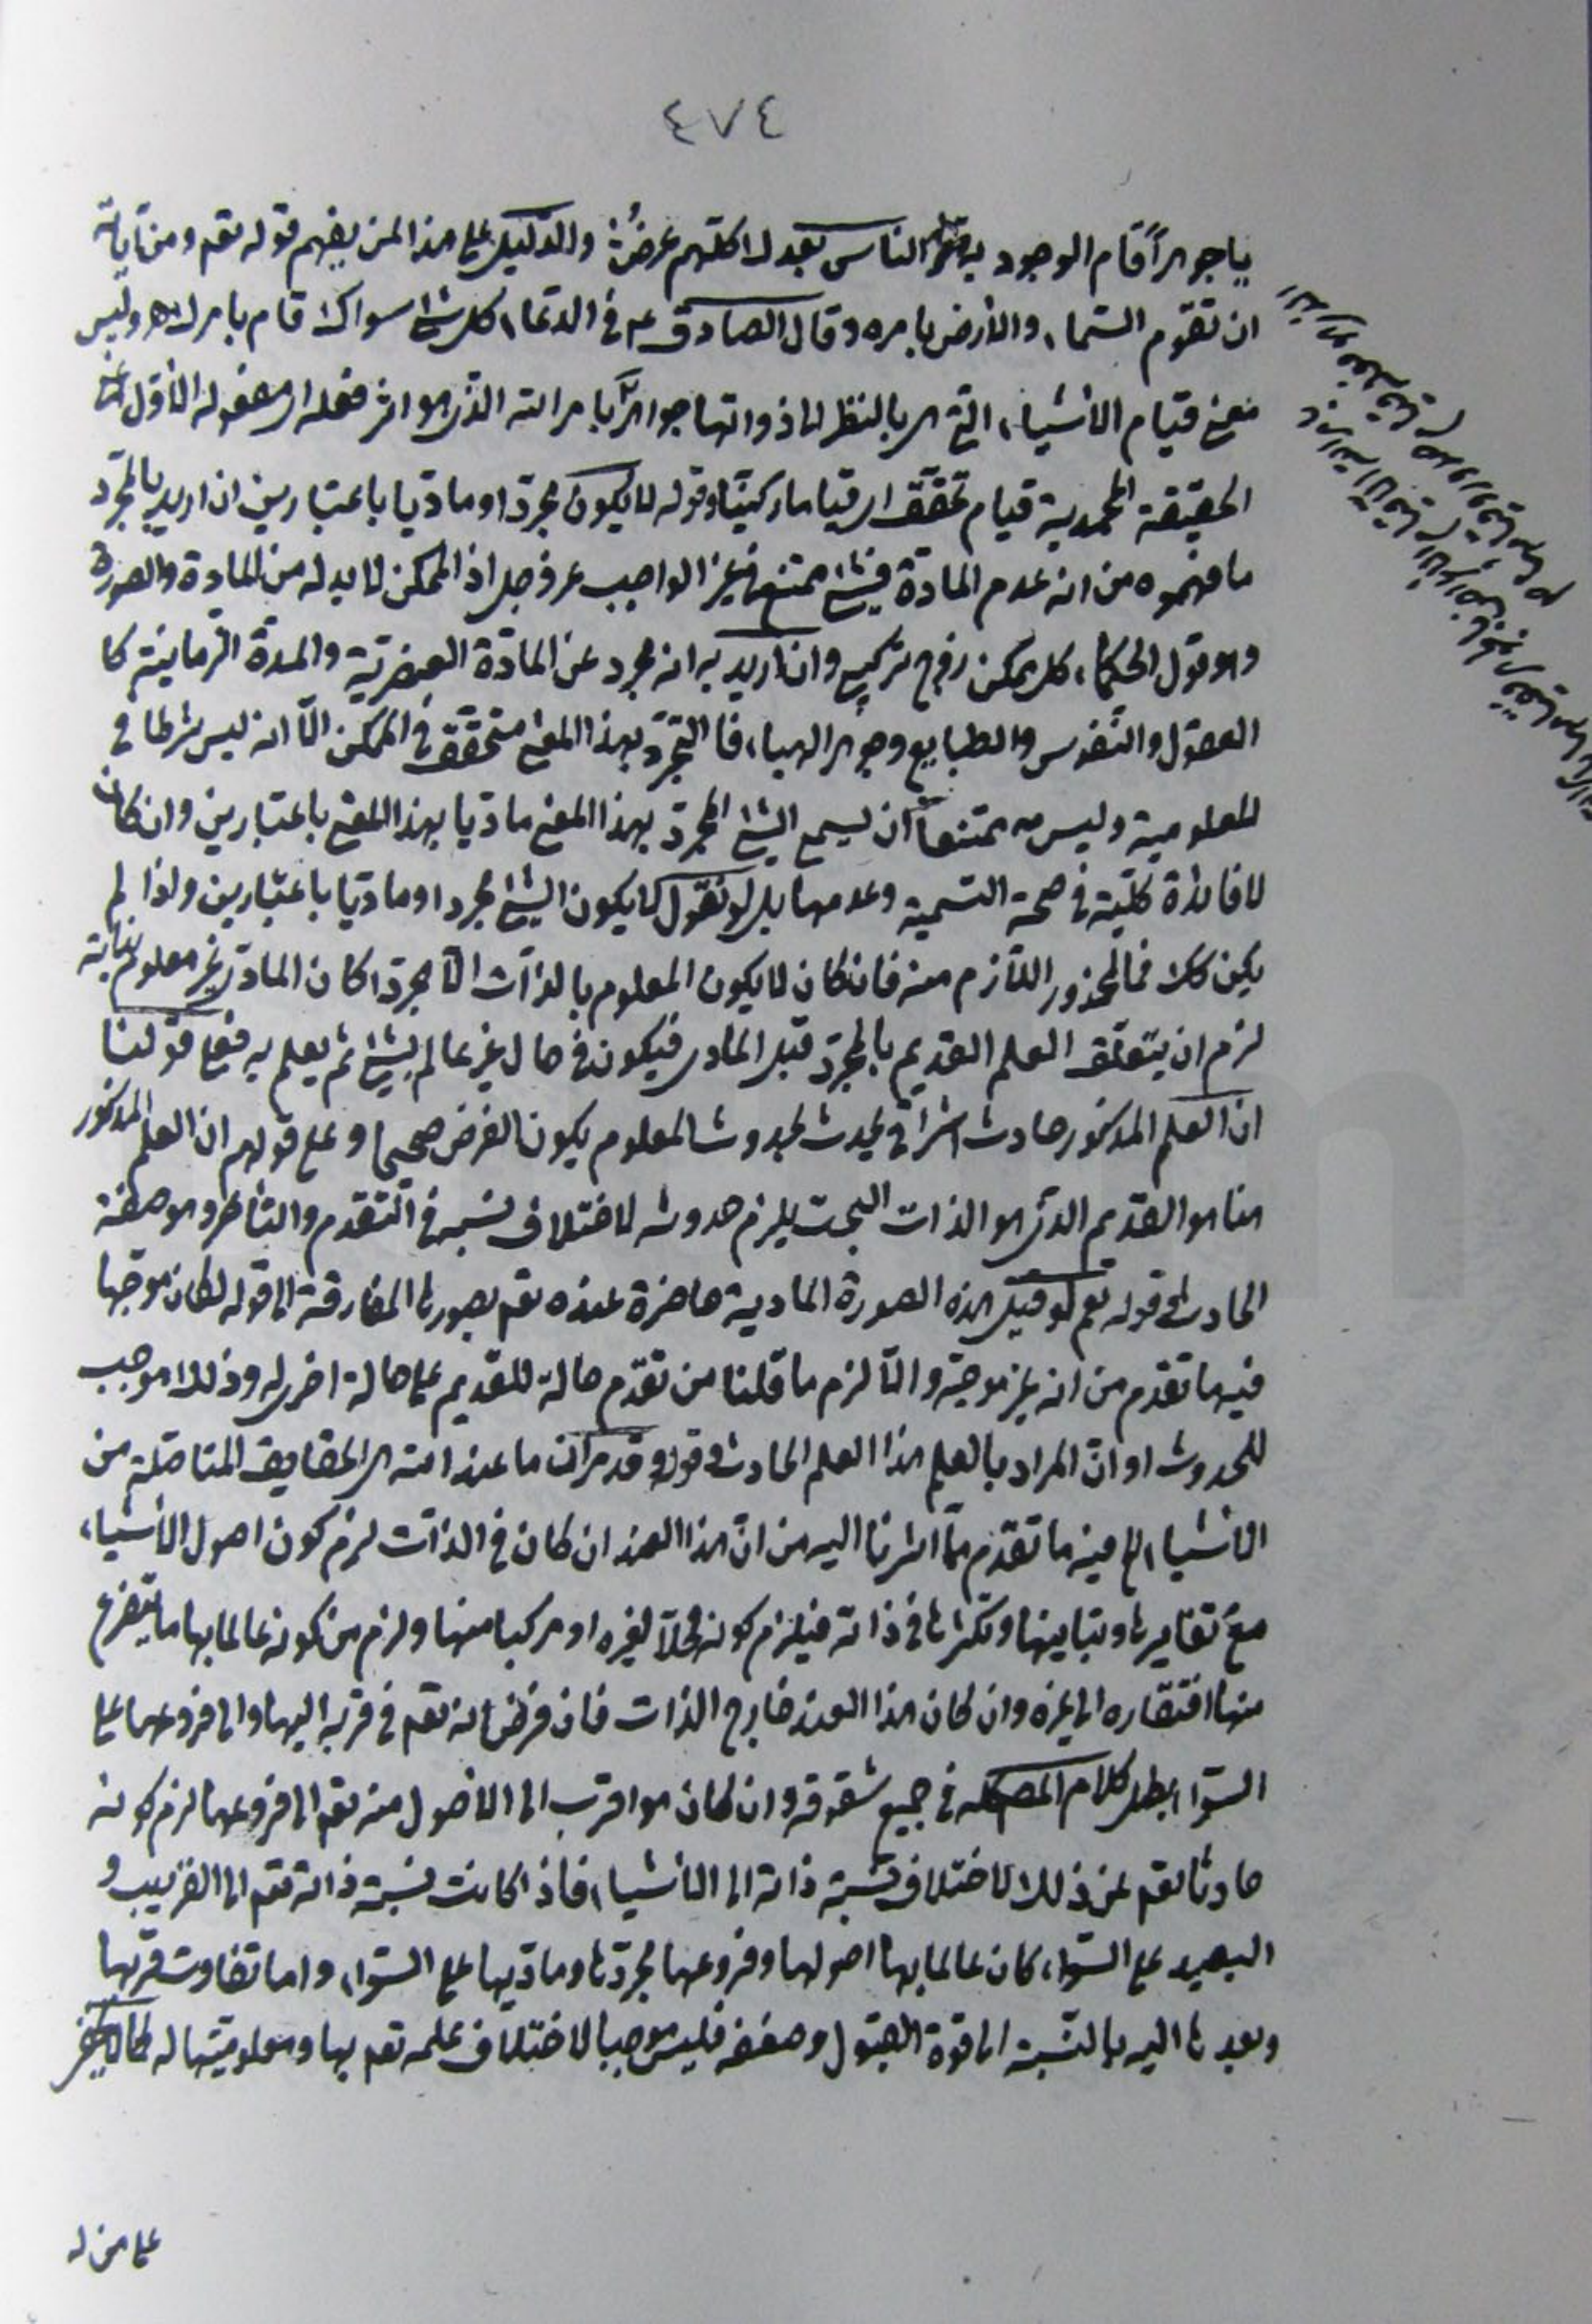 ٤٧٤
يا جوهراً قام الوجود به والناس بعدك كلهم عرضُ والدليل على هذا لمن يفهم قوله تعم ومن آياته
ان تقوم السّماء والأرض بامره وقال الصادق ع م في الدعاء كل شئ سواك قام بامرك وليس
نعني قيام الاشياء التي هي بالنظر الى ذواتها جواهر بامر الله الذي هو اثر فعله اى مفعوله الأوّل اعنى
الحقيقة المحمدية قيام تحقّق اى قياما ركنيّا وقوله لا يكون مجرّدا وماديا باعتبارين ان اريد بالمجرّد
ما فهموه من انه عدم المادّة فشئ ممتنع في غير الواجب عز وجل اذ الممكن لا بد له من المادة والصورة
وهو قول الحكماء كل ممكن زوج تركيبي وان اريد به انه مجرد عن المادّة العنصريّة والمدّة الزمانية كا
العقول والنّفوس والطبايع وجوهر الهباء فالتجرّد بهذا المعنى متحقّق في الممكن الّا انه ليس شرطا في
المعلومية وليس ممتنعاً ان يسمى الشئ المجرّد بهذا المعنى ماديّا بهذا المعنى باعتبارين وان كان
لا فائدة كلّية في صحة التسمية وعدمها بل لو نقول لا يكون الشئ مجردا وماديا باعتبارين ولذا لم
يكن كك فما المحذور اللّازم منه فان كان لا يكون المعلوم بالذات الّا مجرّدا كان المادّي غير معلوم بذاته
لزم ان يتعلّق العلم القديم بالمجرّد قبل المادى فيكون في حال غير عالم بشئ ثم يعلم به فعلى قولنا
ان العلم المذكور حادث اشراقي يحدث بحدوث المعلوم يكون الفرض صحيحا وعلى قولهم ان العلم المذكور
هنا هو القديم الذي هو الذات البحت يلزم حدوثه لاختلاف نسبه في التقدم والتأخر وهو صفة
الحادث وقوله نعم لو قيل هذه الصورة المادية حاضرة عنده تعم بصورتها المفارقة الى قوله لكان موجّها
فيه ما تقدم من انه غير موجّه والّا لزم ما قلنا من تقدّم حالة للقديم على حالة اخرى له وذلك موجب
للحدوث او انّ المراد بالعلم هذا العلم الحادث وقوله وقد مرّ ان ما عند الله هى الحقايق المتاصّلة من
الاشياء الخ فيه ما تقدّم ممّا اشرنا اليه من انّ هذا العند ان كان في الذات لزم كون اصول الأشياء
مع تغايرها وتباينها وتكثرها في ذاته فيلزم كونه محلّا لغيره او مركبا منها ولزم من كونه عالما بها ما يتفرع
منها افتقاره الى غيره وان كان هذا العند خارج الذات فان فرض انه تعم في قربه اليها والى فروعها على
السّواء بطل كلام المص كله في جميع شقوقه وان كان هو اقرب الى الاصول منه تعم الى فروعها لزم كونه
حادثا تعم عن ذلك لاختلاف نسبة ذاته الى الأشياء فاذا كانت نسبة ذاته تعم الى القريب و
البعيد على السّواء كان عالما بها اصولها وفروعها مجرّدها وماديها على السّواء واما تفاوت قربها
وبعدها اليه بالنّسبة الى قوة القبول وضعفه فليس موجبا لاختلاف علمه تعم بها ومعلوميّتها له
على من له